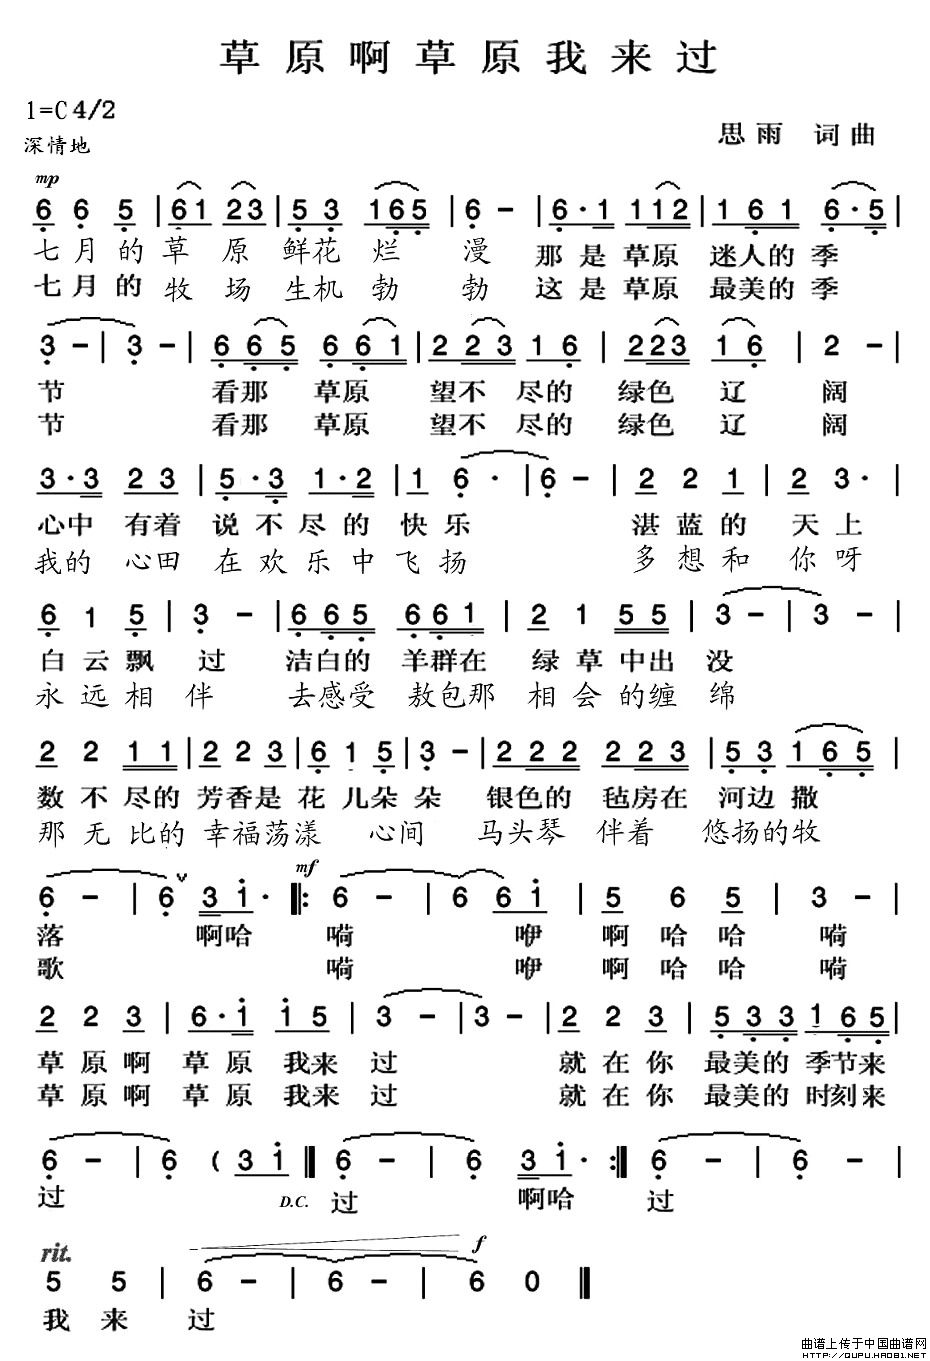 草原啊草原我来过
1=C 4/2
思雨 词曲
深情地
mp
6 6 5 | 6 1 2 3 | 5 3 1 6 5 | 6 - | 6 · 1 1 1 2 | 1 6 1 6 · 5 |
七月的草原鲜花烂漫 那是草原迷人的季
七月的牧场生机勃勃 这是草原最美的季
3 - | 3 - | 6 6 5 6 6 1 | 2 2 3 1 6 | 2 2 3 1 6 | 2 - |
节 看那草原望不尽的绿色辽阔
节 看那草原望不尽的绿色辽阔
3 · 3 2 3 | 5 · 3 1 · 2 | 1 6 · | 6 · | 2 2 1 | 2 3 · |
心中有着说不尽的快乐 湛蓝的天上
我的心田在欢乐中飞扬 多想和你呀
6 1 5 | 3 - | 6 6 5 6 6 1 | 2 1 5 5 | 3 - | 3 |
白云飘过 洁白的羊群在绿草中出没
永远相伴 去感受敖包那相会的缠绵
2 2 1 1 | 2 2 3 | 6 1 5 | 3 - | 2 2 2 2 2 3 | 5 3 1 6 5 |
数不尽的芳香是花儿朵朵 银色的毡房在河边撒
那无比的幸福荡漾心间 马头琴伴着悠扬的牧
mf
6 - | 6 ∨ 3 i · ‖: 6 - | 6 6 i | 5 6 5 | 3 - |
落 啊哈 嗬 咿 啊哈哈嗬
歌 嗬 咿 啊哈哈嗬
2 2 3 | 6 · i i 5 | 3 - | 3 - | 2 2 3 | 5 3 3 1 6 5 |
草原啊草原我来过 就在你最美的季节来
草原啊草原我来过 就在你最美的时刻来
6 - | 6 ( 3 i ‖ 6 - | 6 3 i · :‖ 6 - | 6 - |
过 D.C. 过 啊哈 过
rit. f
5 5 | 6 - | 6 - | 6 0 ‖
我来过
曲谱上传于中国曲谱网
HTTP://QUPU.HAO81.NET